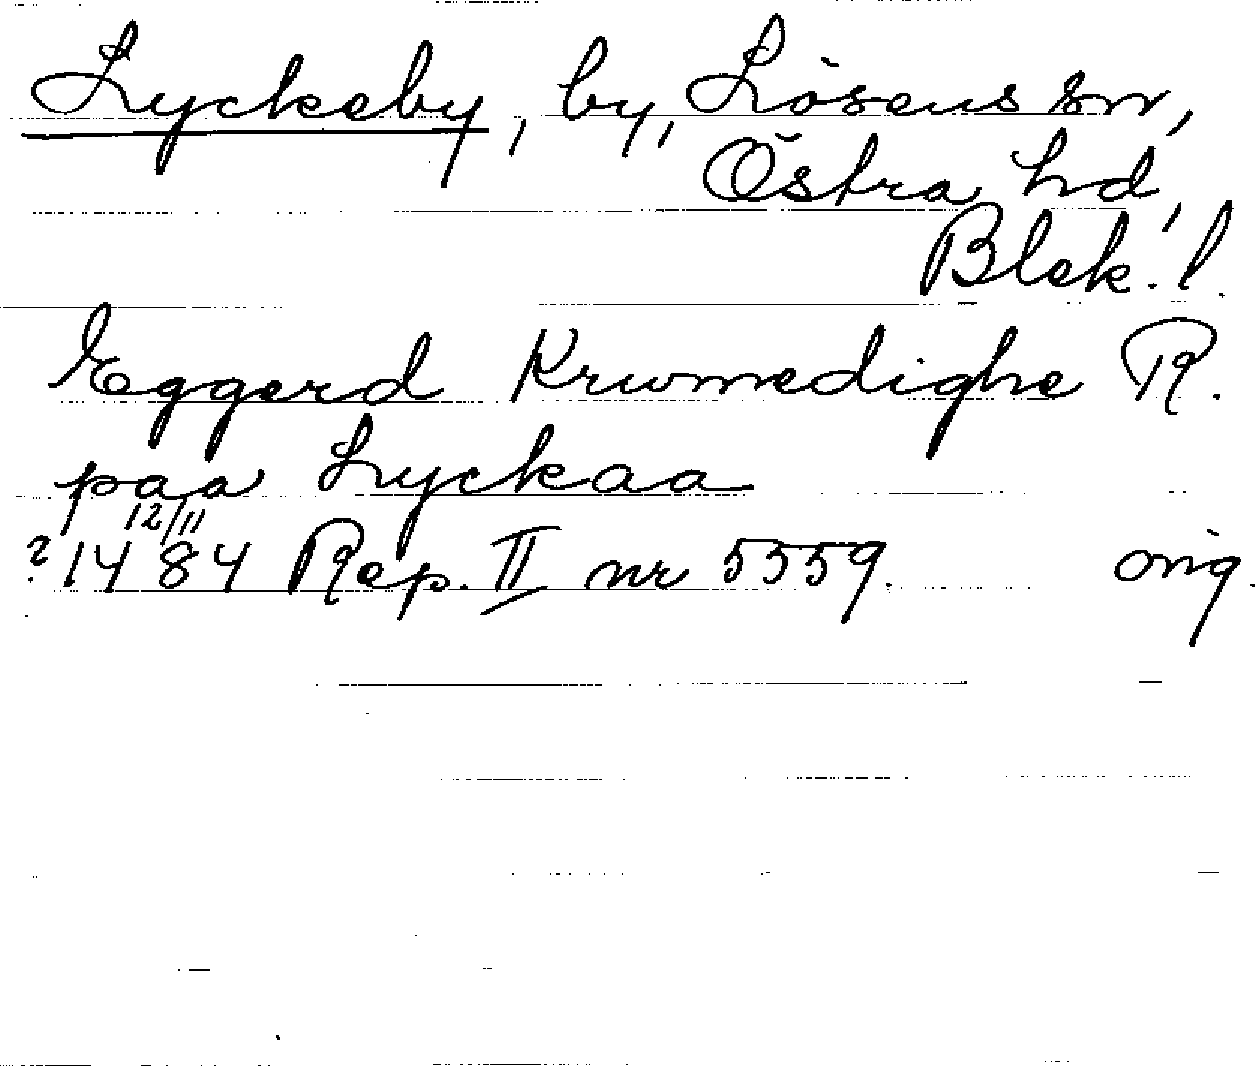 Lyckeby, by, Lösens sn,
Östra hd,
Blek. l.
Eggerd Krumedighe R.
paa Lyckaa
12/11
? 1484 Rep. II nr 5559. orig.